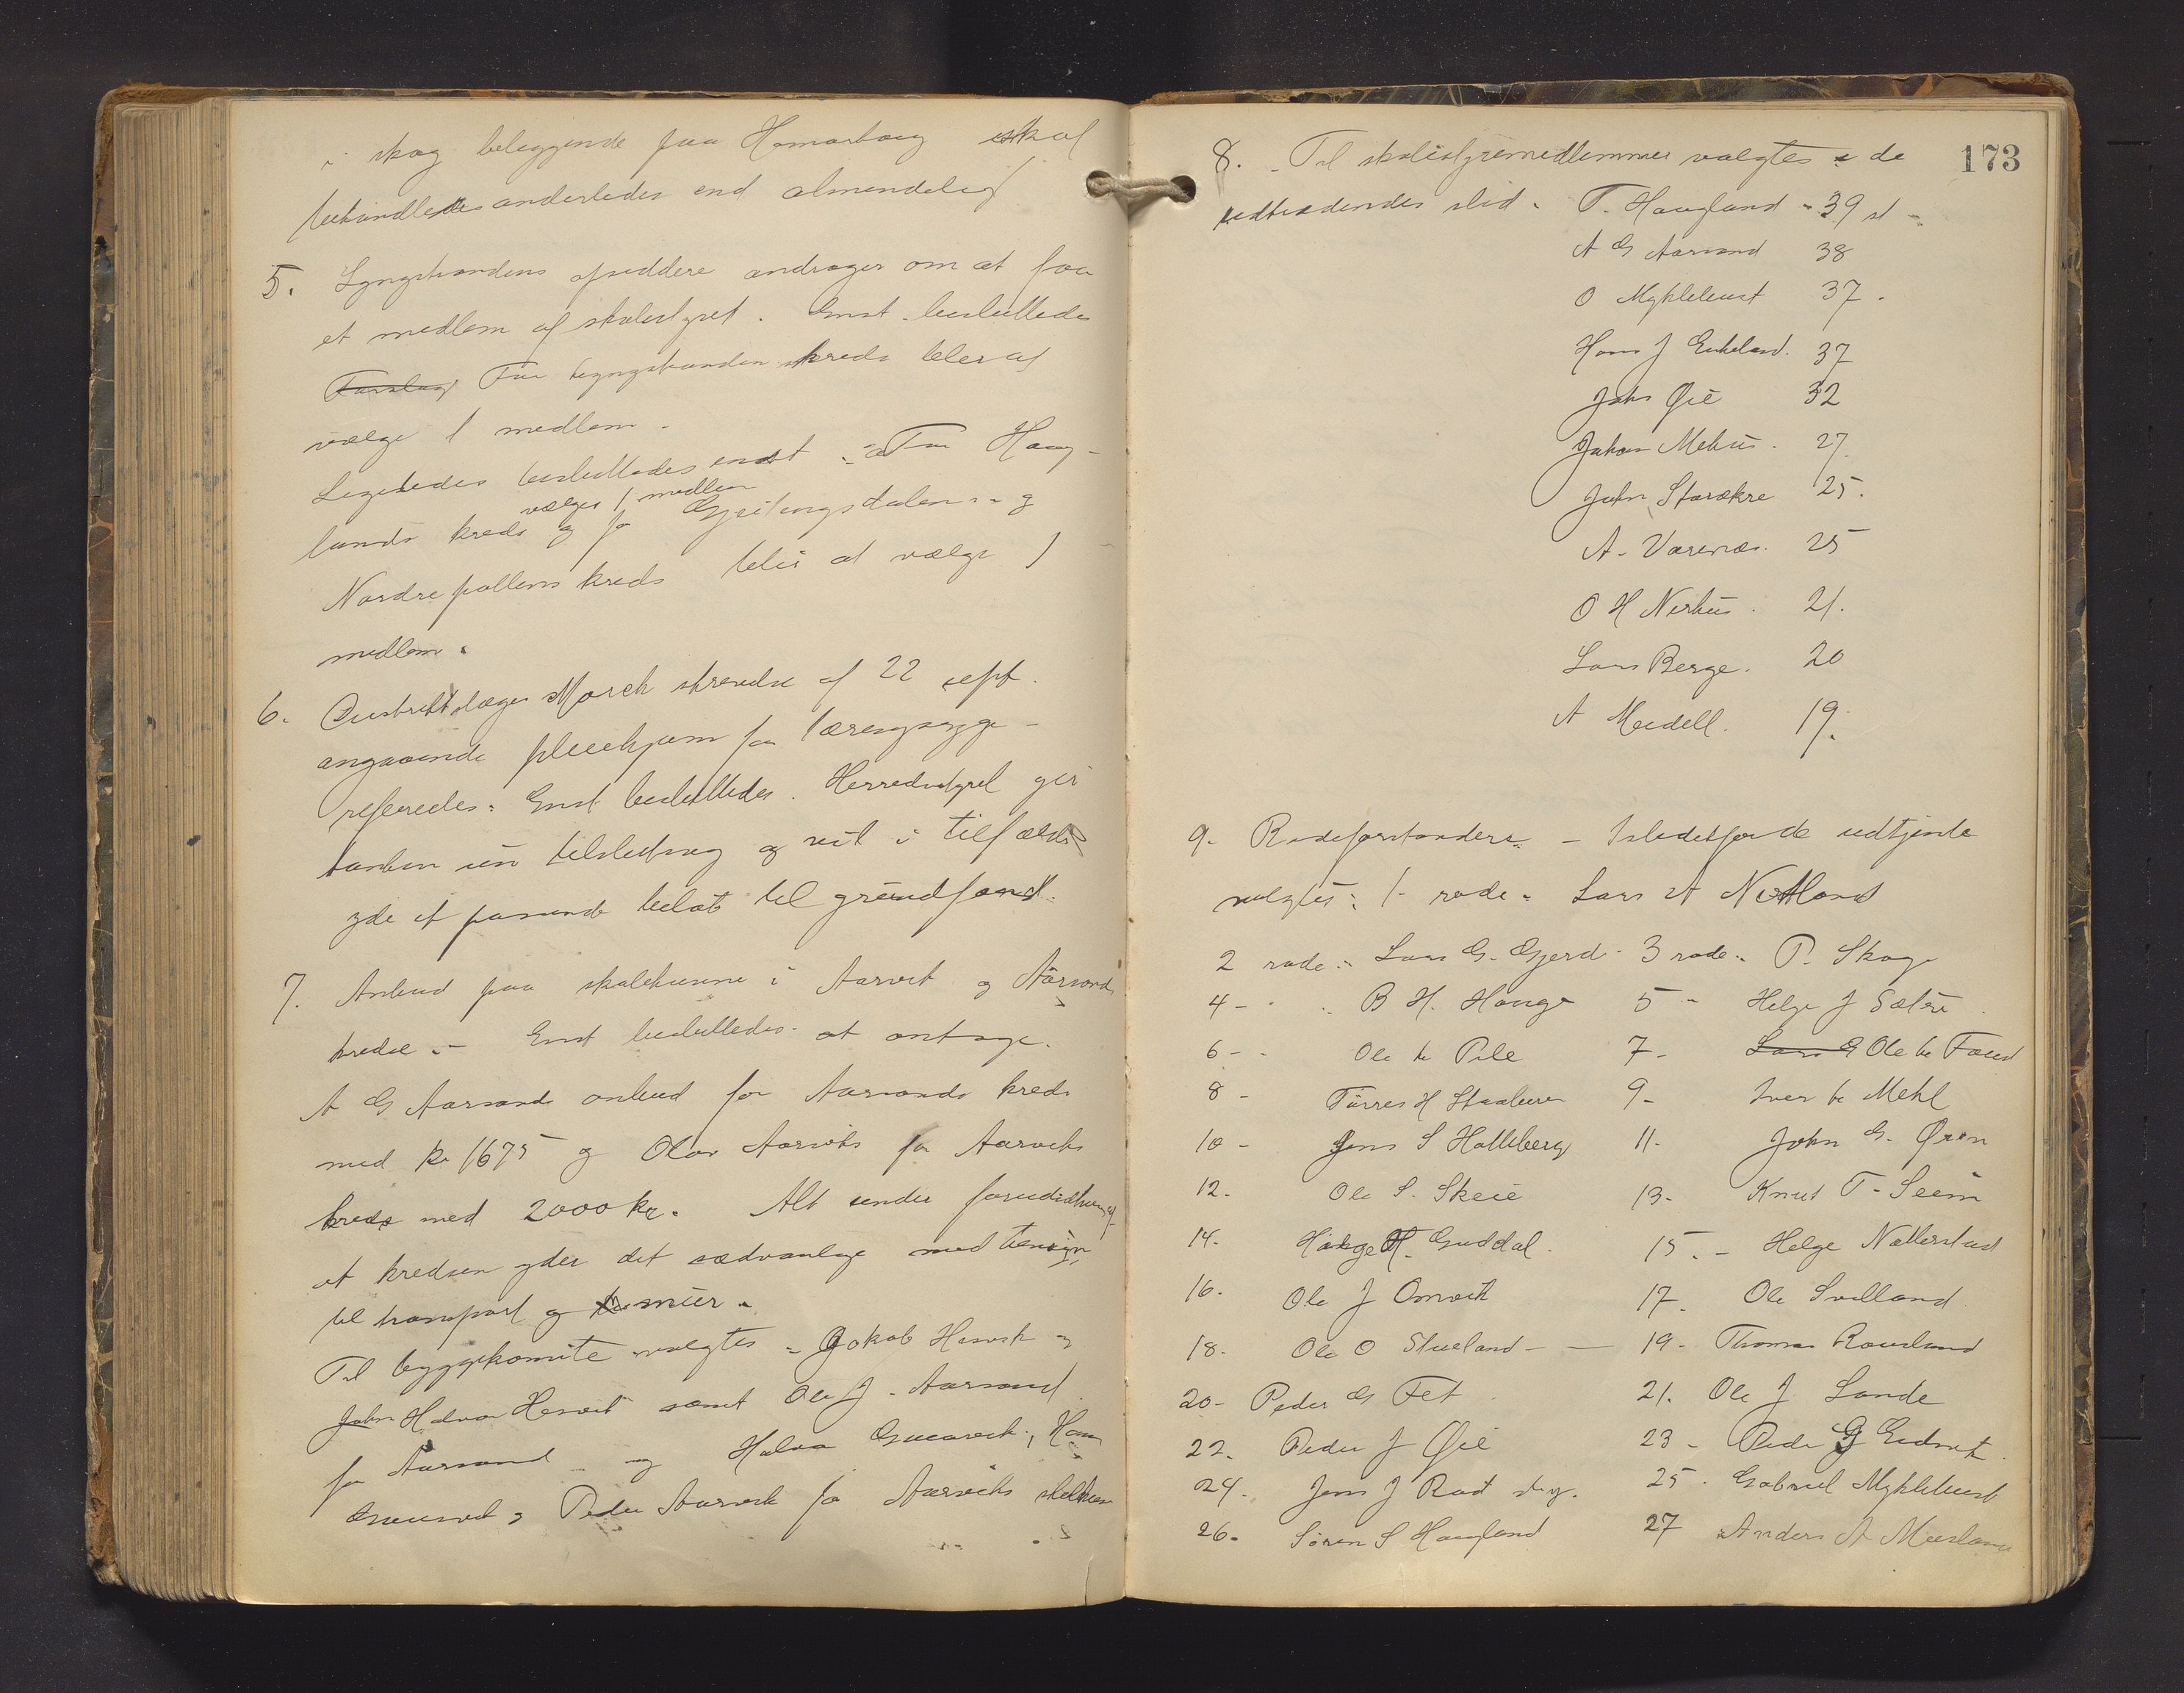 i skog beleggende paa Hamarhaug skal
behandledes anderledes end almendelig
5. Lyngstrandens opsiddere andrager om at faa
et medlem af skolestyret. Enst. besluttedes
Forslag For Lyngstrandens kreds blir at
vælge 1 medlem.
Ligeledes besluttedes enst. at For Haug-
vælges 1 medlem
lands kreds og for Gjeitingsdalen og
Nordrepollens kreds blir at vælge 1
medlem.
6. Distriktslæge Morch skrivelse af 22 sept.
angaaende pleiehjem for tæringssyge
refereredes. Enst. besluttedes. Herredsstyret gir
tanken sin tilslutning og vil i tilfælde
yde et passende beløb til grundfond.
7. Anbud paa skolehusene i Aarvik og Aarsands
kredse. – Enst besluttedes at antage.
A G Aarsands anbud for Aarsands kreds
med kr 1675 og Olav Aarviks for Aarviks
kreds med 2000 kr. Alt under forudsætning af
at kredsen yder det sædvanlige med hensyn
til transport og mur.
Til byggekomite valgtes Jakob Hesvik og
John Halvor Hesvik samt Ole J. Aarsand
for Aarsand og Halvor Gucarvik, Hans
Peder Aarvik for Aarviks skolehus
173
8. Til skolestyremedlemmer valgtes i de
udtrædendes sted. T. Haugland - 39 st -
A G Aarsand 38
O Myklebust 37.
Hans J Enkeland. 37
Johs Øie 32
Johan Mehus. 27
John Starækre 25.
A. Varenæs. 25
O H Nerhus. 21.
Lars Berge. 20
A Meidell. 19.
9. Rodeforstandere. – Istedetfor de udtjente
valgtes: 1 rode. Lars A Notland
2 rode. Lars G. Gjerd. 3 rode. P. Skoge
4 - B H. Hauge 5 - Helge J Sætre
6 - Ole Pile 7 - Lars G Ole Faud
8 - Tørres H Staalesen 9 - Iver Mehl
10 - Jens S Halleberg 11. John G. Øren
12. Ole S. Skeie 13. Knut T. Seim
14. Hauge H. Guddal. 15. - Helge Nallerstad
16. Ole J Omvik 17. Ole Svelland
18. Ole O Stueland - - 19. Thomas Rousland
20 - Peder G Fet 21. Ole J. Sande
22. Peder J Øie 23 - Peder G Eidsvik
24. Jens J Rød 25. Gabriel Myklebust
26. Søren S Haugland 27 Anders A Musland